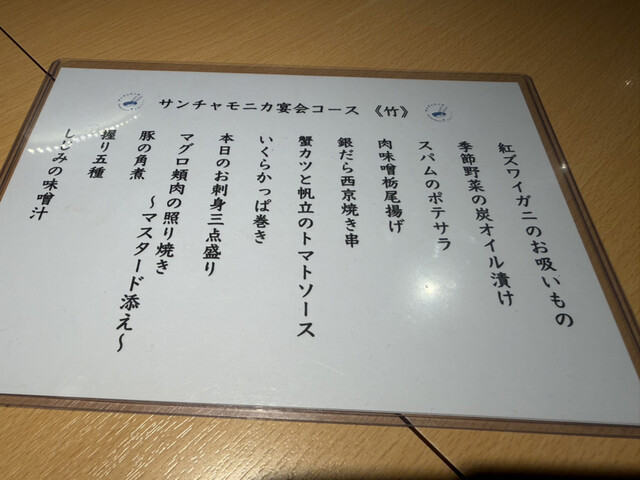 サンチャモニカ宴会コース 《竹》
紅ズワイガニのお吸いもの
季節野菜の炭オイル漬け
スパムのポテサラ
肉味噌栃尾揚げ
銀だら西京焼き串
蟹カツと帆立のトマトソース
いくらかっぱ巻き
本日のお刺身三点盛り
マグロ頬肉の照り焼き
～マスタード添え～
豚の角煮
握り五種
しじみの味噌汁